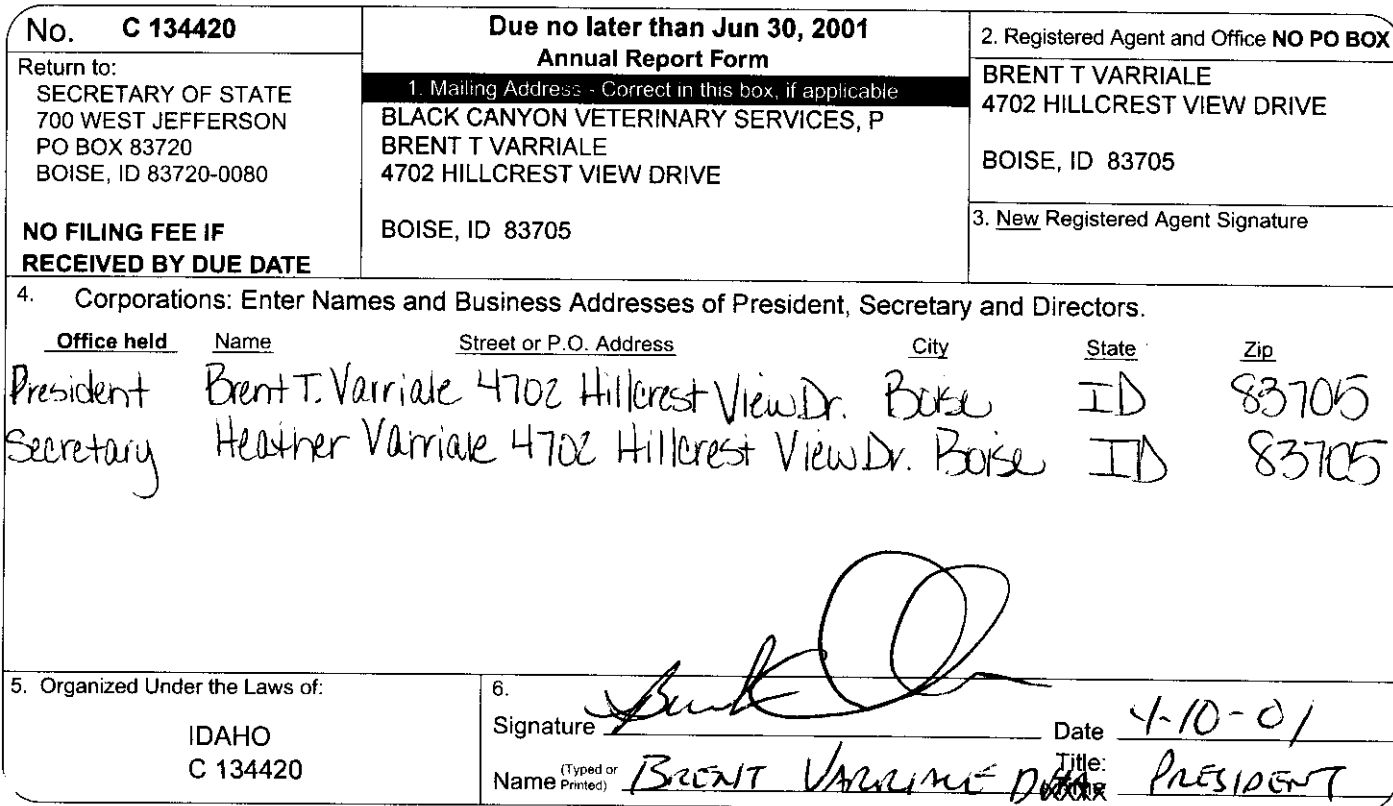 No. C 134420
Return to:
SECRETARY OF STATE
700 WEST JEFFERSON
PO BOX 83720
BOISE, ID 83720-0080
NO FILING FEE IF
RECEIVED BY DUE DATE
Due no later than Jun 30, 2001
Annual Report Form
1. Mailing Address - Correct in this box, if applicable
BLACK CANYON VETERINARY SERVICES, P
BRENT T VARRIALE
4702 HILLCREST VIEW DRIVE
BOISE, ID 83705
2. Registered Agent and Office NO PO BOX
BRENT T VARRIALE
4702 HILLCREST VIEW DRIVE
BOISE, ID 83705
3. New Registered Agent Signature
4. Corporations: Enter Names and Business Addresses of President, Secretary and Directors.
Office held Name Street or P.O. Address City State Zip
President Brent T. Varriale 4702 Hillcrest View Dr. Boise ID 83705
Secretary Heather Varriale 4702 Hillcrest View Dr. Boise ID 83705
5. Organized Under the Laws of:
IDAHO
C 134420
6.
Signature
Date 4-10-01
Name (Typed or Printed) BRENT VARRIALE
Title: PRESIDENT